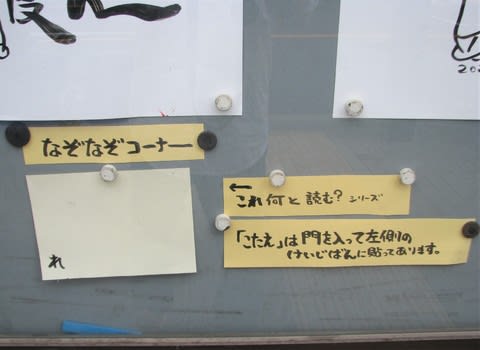 度
202
なぞなぞコーナー
れ
← これ 何と読む? シリーズ
「こたえ」は門を入って左側の
けいじばんに貼ってあります。